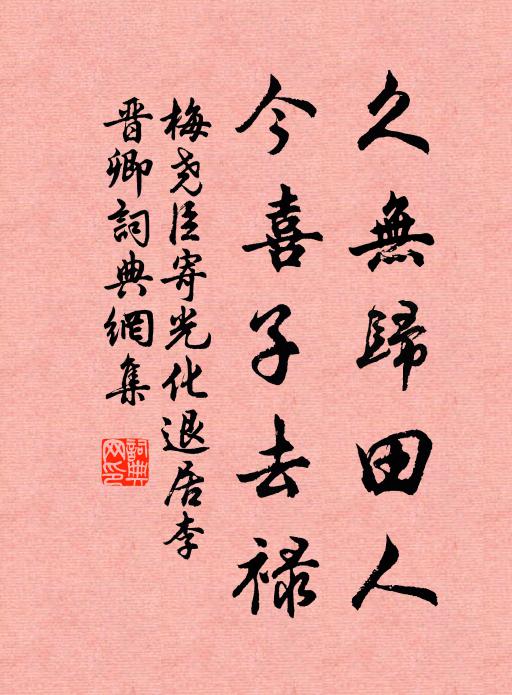 久無歸田人
今喜子去禄
梅尧臣寄光化退居李
晋卿詞典網集
詞典网印